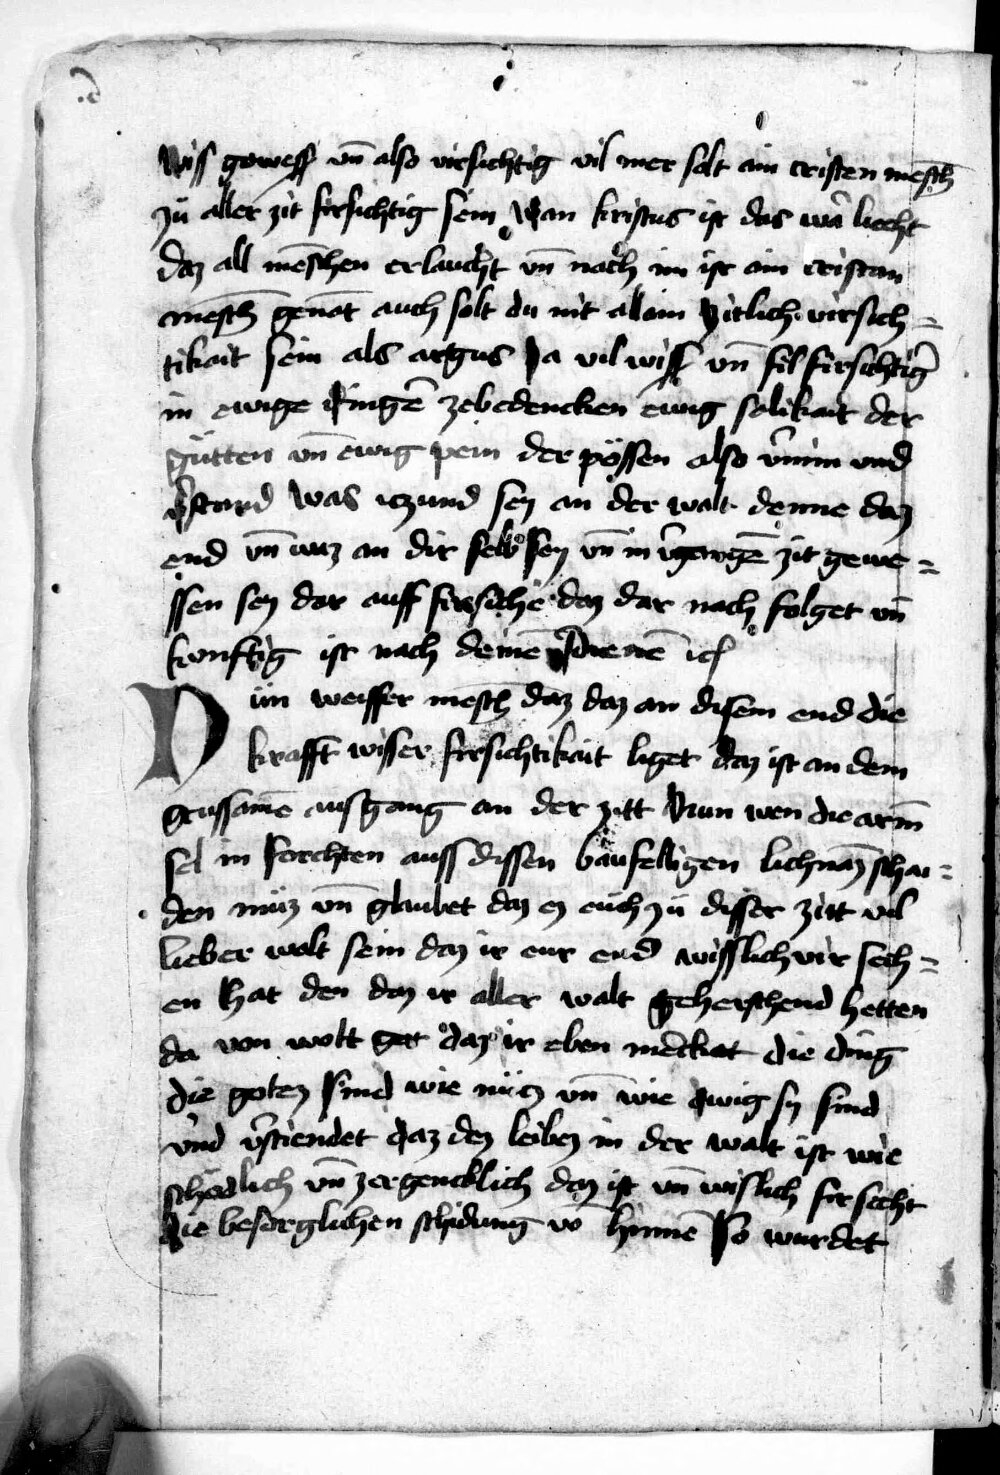 wiss gewess vn̄ also virsichtig vil mer solt ain cristen mēsch
zů aller zit firsichtig sein Wan kristus ist das war̄ liecht
daz all mēschen erlaucht vn̄ nach im ist ain cristan
mēsch genāt auch solt du nit allain zitlich virsich=
tikait sein als argus Ja vil wiss vn̄ fil firsichtiḡ
in ewige dingē zebedencken ewig selikait der
gůtten vn̄ ewig pein der pössen also v̄nim vnd
v̄stand was iczund sey an der walt denne daz
end vn̄ waz an dir selb sey vn̄ in v̄gangē zit gewe=
ssen sey dar auff firsiche daz dar nach folget vn̄
kunftig ist nach deinē
Nun weisser mēsch daz daz an disem end die
krafft wisser firsichtikait liget daz ist an dem
grussamē ausgang an der zitt Nun wen die arm̄
sel in forchten auss dissen baufelligen lichnaz schai=
den můz vn̄ glaubet daz ez euch zů disser zitt vil
lieber wolt sein daz ir eur end wisslich vir sech=
en hat den daz ir aller walt geherschend hetten
da von wolt got daz ir eben merckat die ding
die gotez sind wie nücz vn̄ wie ewig sy sind
vnd v̄stiendet daz dez leibez in der walt ist wie
schedlich vn̄ zergencklich daz ist vn̄ wislich firsecht
die besorglichen schidung vō hinnē So wurdet